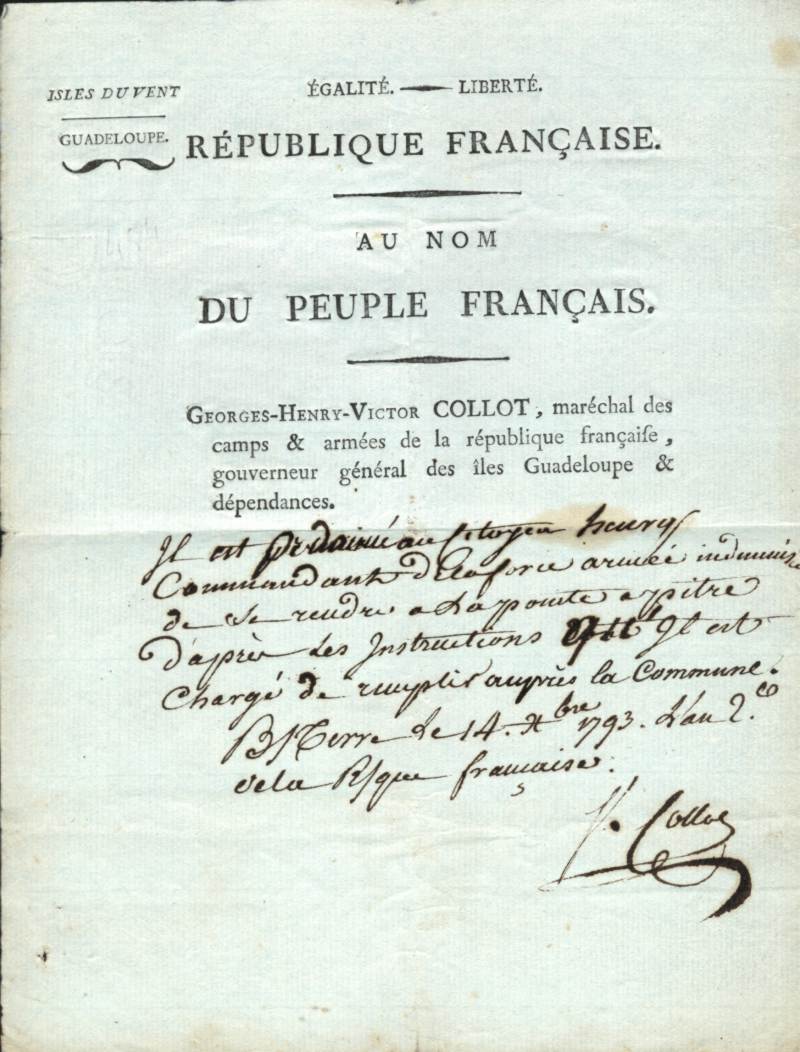 ISLES DU VENT
GUADELOUPE.
ÉGALITÉ. — LIBERTÉ.
RÉPUBLIQUE FRANÇAISE.
AU NOM
DU PEUPLE FRANÇAIS.
GEORGES-HENRY-VICTOR COLLOT, maréchal des
camps & armées de la république françaiſe,
gouverneur général des îles Guadeloupe &
dépendances.
Il est au Citoyen henry
Commandant dela force armée
de se rendre a La pointe a pitre
D'après Les Instructions qu'Il est
Chargé de remplir auprès la Commune.
B/Terre Le 14. Xbre 1793. L'an 2.e
dela R/que française.
V. Collot